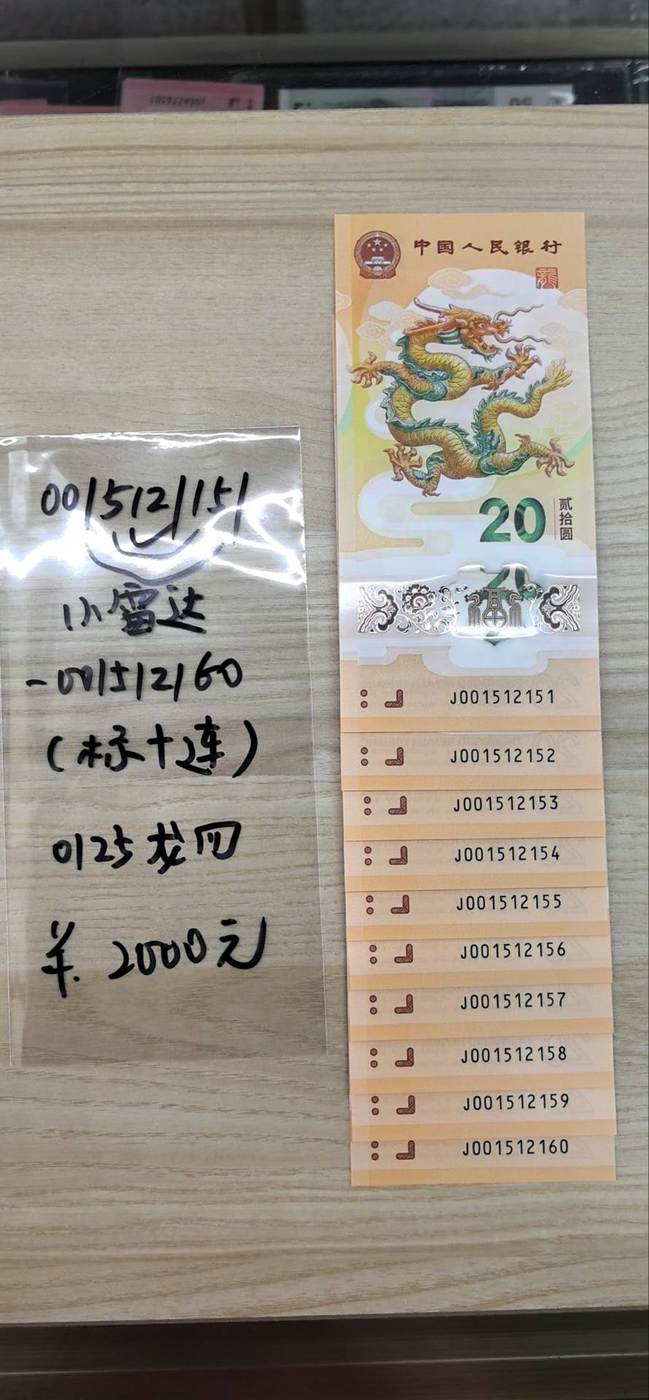 中国人民银行
龍
20
贰拾圆
J001512151
J001512152
J001512153
J001512154
J001512155
J001512156
J001512157
J001512158
J001512159
J001512160
001512151
小雷达
-001512160
(标十连)
0125龙四
¥.2000元